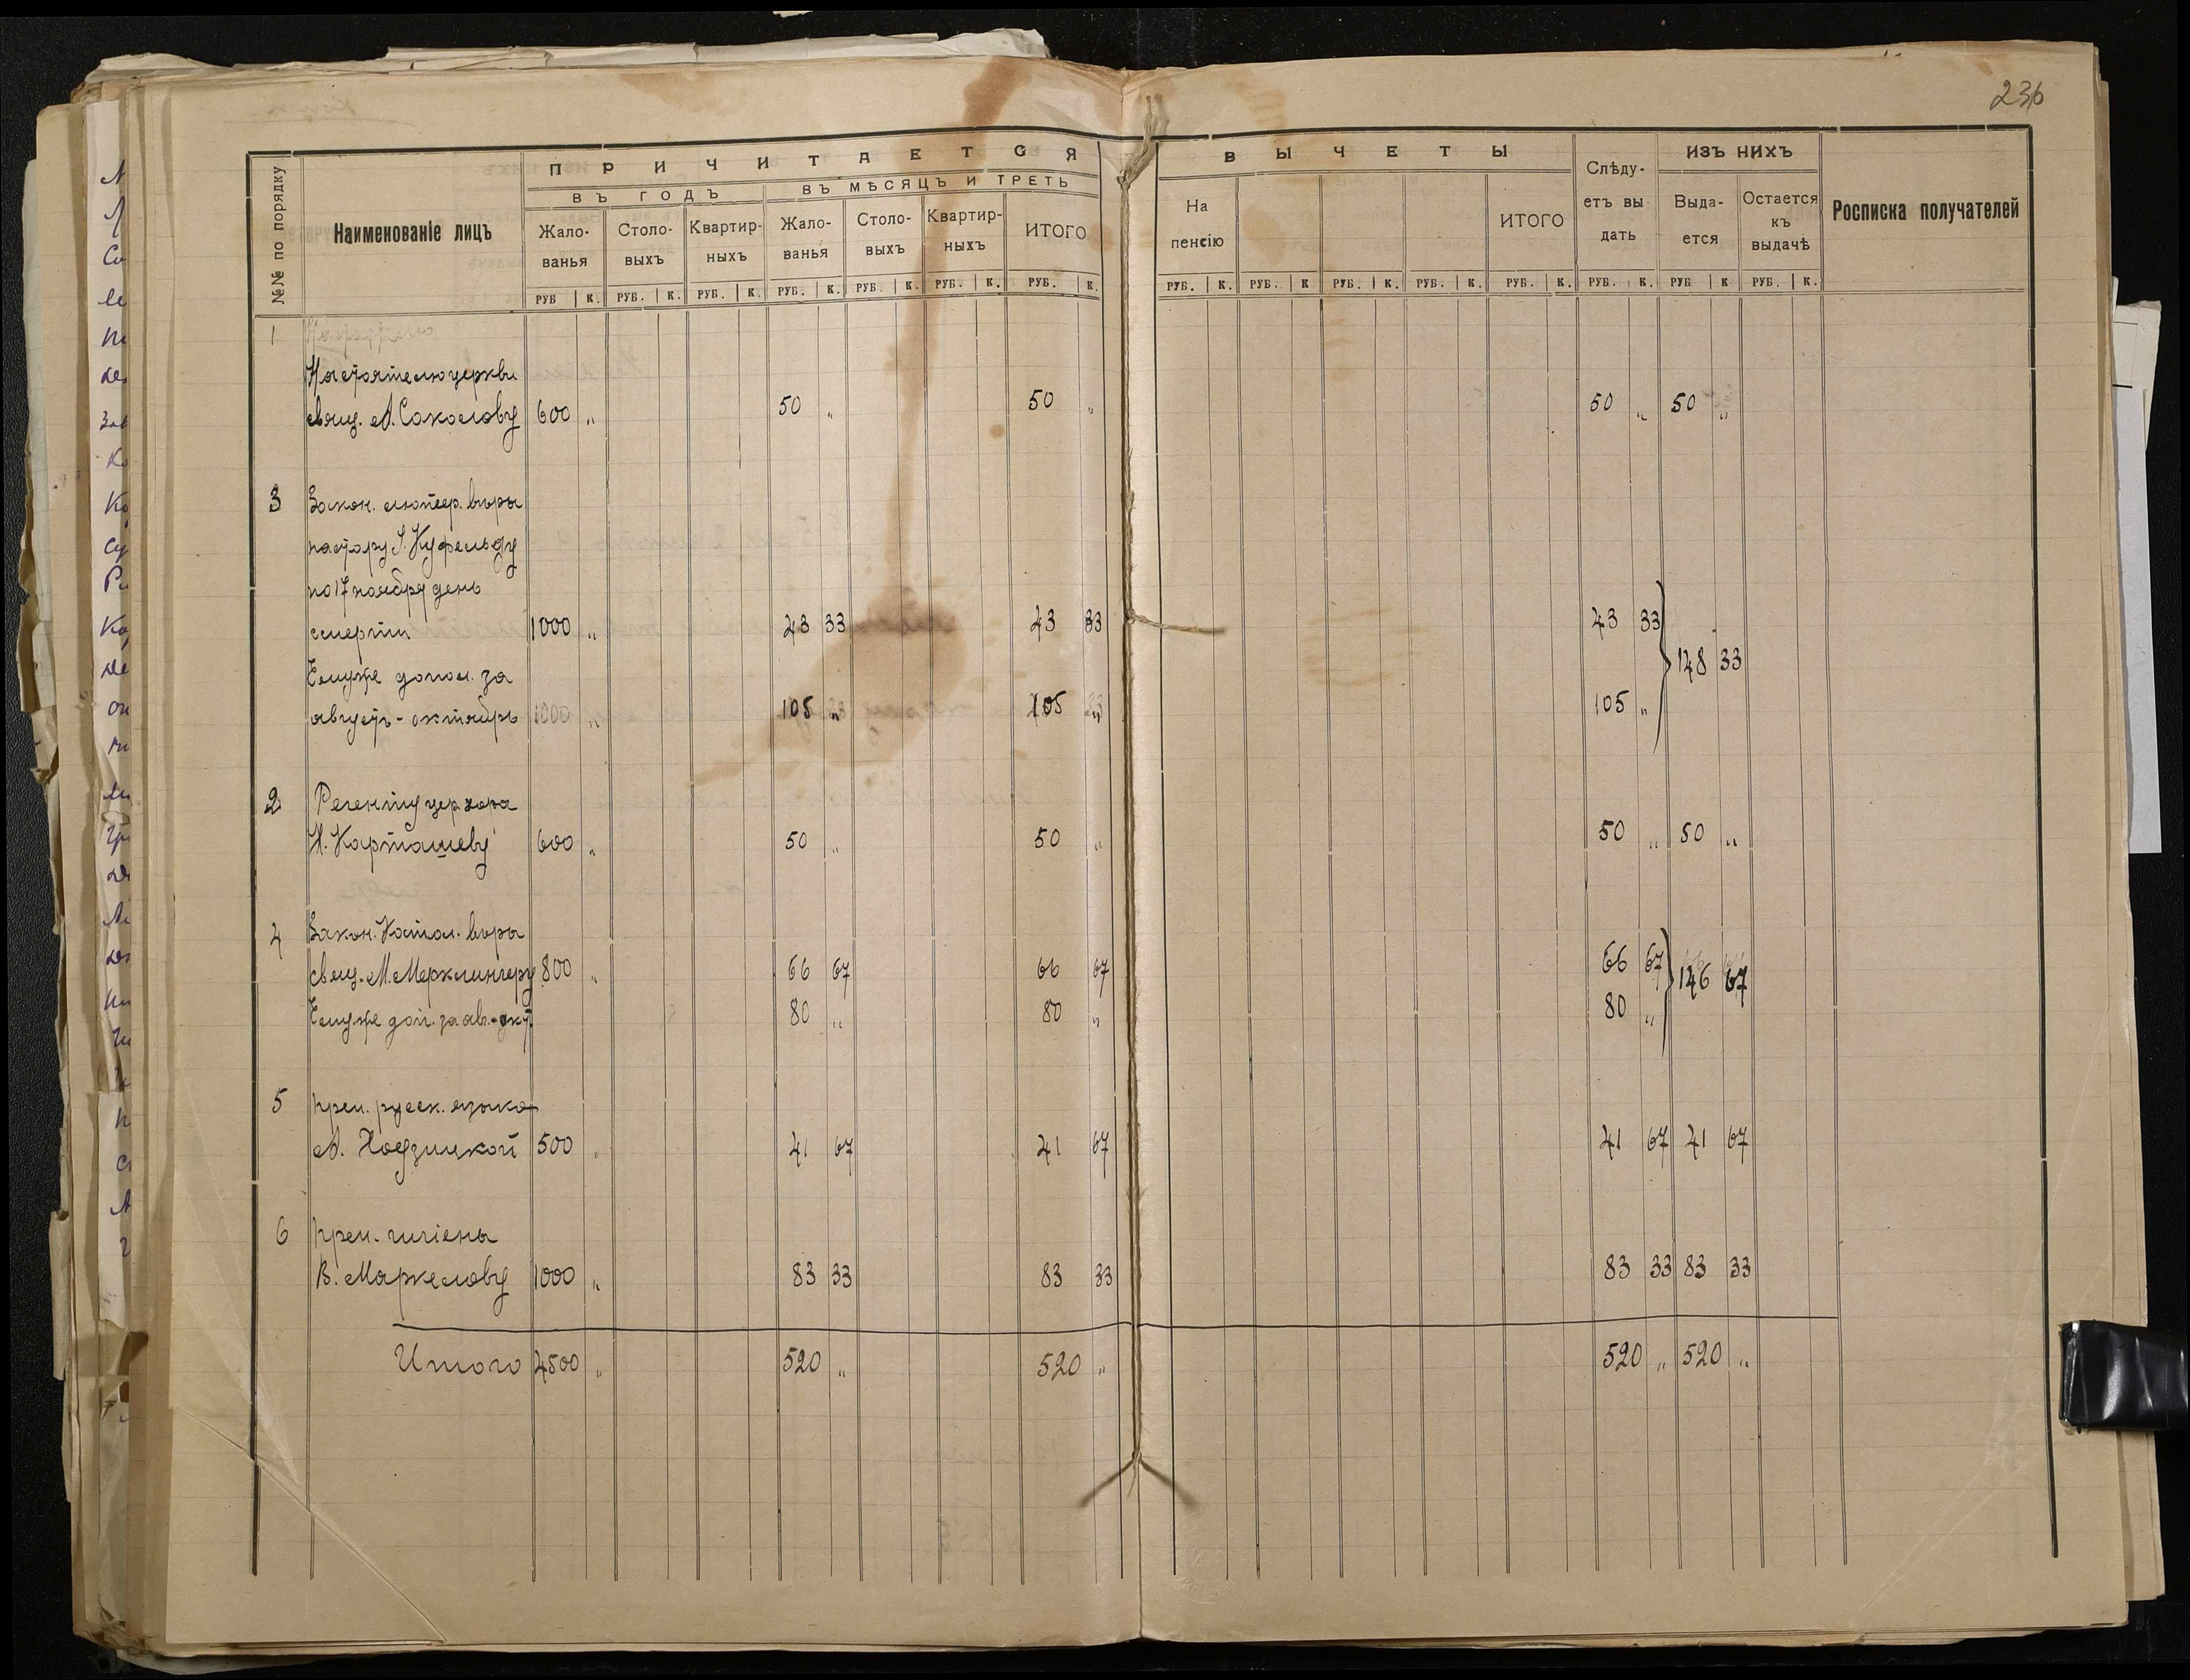 236
ПРИЧИТАЕТСЯ
ВЫЧЕТЫ
ИЗЪ НИХЪ
№№ по порядку
Наименованіе лицъ
ВЪ ГОДЪ
ВЪ МѢСЯЦЪ И ТРЕТЬ
Жало-ванья
Столо-выхъ
Квартир-ныхъ
Жало-ванья
Столо-выхъ
Квартир-ныхъ
ИТОГО
На пенсію
ИТОГО
Слѣду-етъ вы дать
Выда-ется
Остается къ выдачѣ
Росписка получателей
РУБ К. РУБ. К. РУБ. К. РУБ. К. РУБ. К. РУБ. К. РУБ. К. РУБ. К. РУБ. К РУБ. К. РУБ. К. РУБ. К. РУБ. К. РУБ К РУБ. К.
1
Настоятелю церкви
свящ. А. Соколову 600 „ 50 „ 50 „ 50 „ 50 „
3 Закон. лютер. вѣры
пастору І. Куфельду
по 17 ноября день
смерти 1000 „ 43 33 43 33 43 33
148 33
Ему же допол. за
августъ - октябрь 1000 „ 105 „ 105 „ 105 „
2 Регенту цер хора
Н. Карташеву 600 „ 50 „ 50 „ 50 „ 50 „
4 Закон. Катол. вѣры
свящ. М. Мерклингеру 800 „ 66 67 66 67 66 67 146 67
Ему же доп. за ав.-окт. 80 „ 80 „ 80 „
5 Преп. русск. языка
А. Ходзицкой 500 „ 41 67 41 67 41 67 41 67
6 Преп. гигіены
В. Маркелову 1000 „ 83 33 83 33 83 33 83 33
Итого 4500 „ 520 „ 520 „ 520 „ 520 „